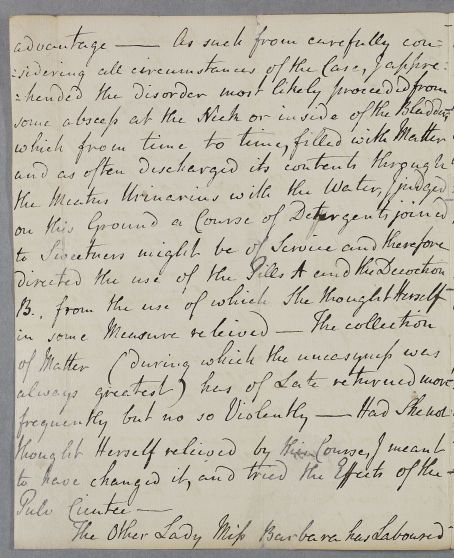 advantage — As such from carefully con-
:sidering all circumstances of the Case, I appre:
:hended the disorder most likely proceeded from
some abscess at the Neck or inside of the Bladder,
which from time to time, filled with Matter
and as often discharged its contents through
the Meatus Urinarius with the Water, I judged
on this Ground a Course of Detergents joined
to Sweetners might be of Service and therefore
directed the use of the Pills A and the Decoction
B., from the use of which She thought Herself
in some Measure releived — The collection
of Matter (during which the uneasyness was
always greatest) has of Late returned more
frequently but no so Violently — Had She not
thought Herself releived by this Course, I meant
to have changed it, and tried the Effects of the
Pulv Cicutee —
The Other Lady Miss Barbara has Laboured